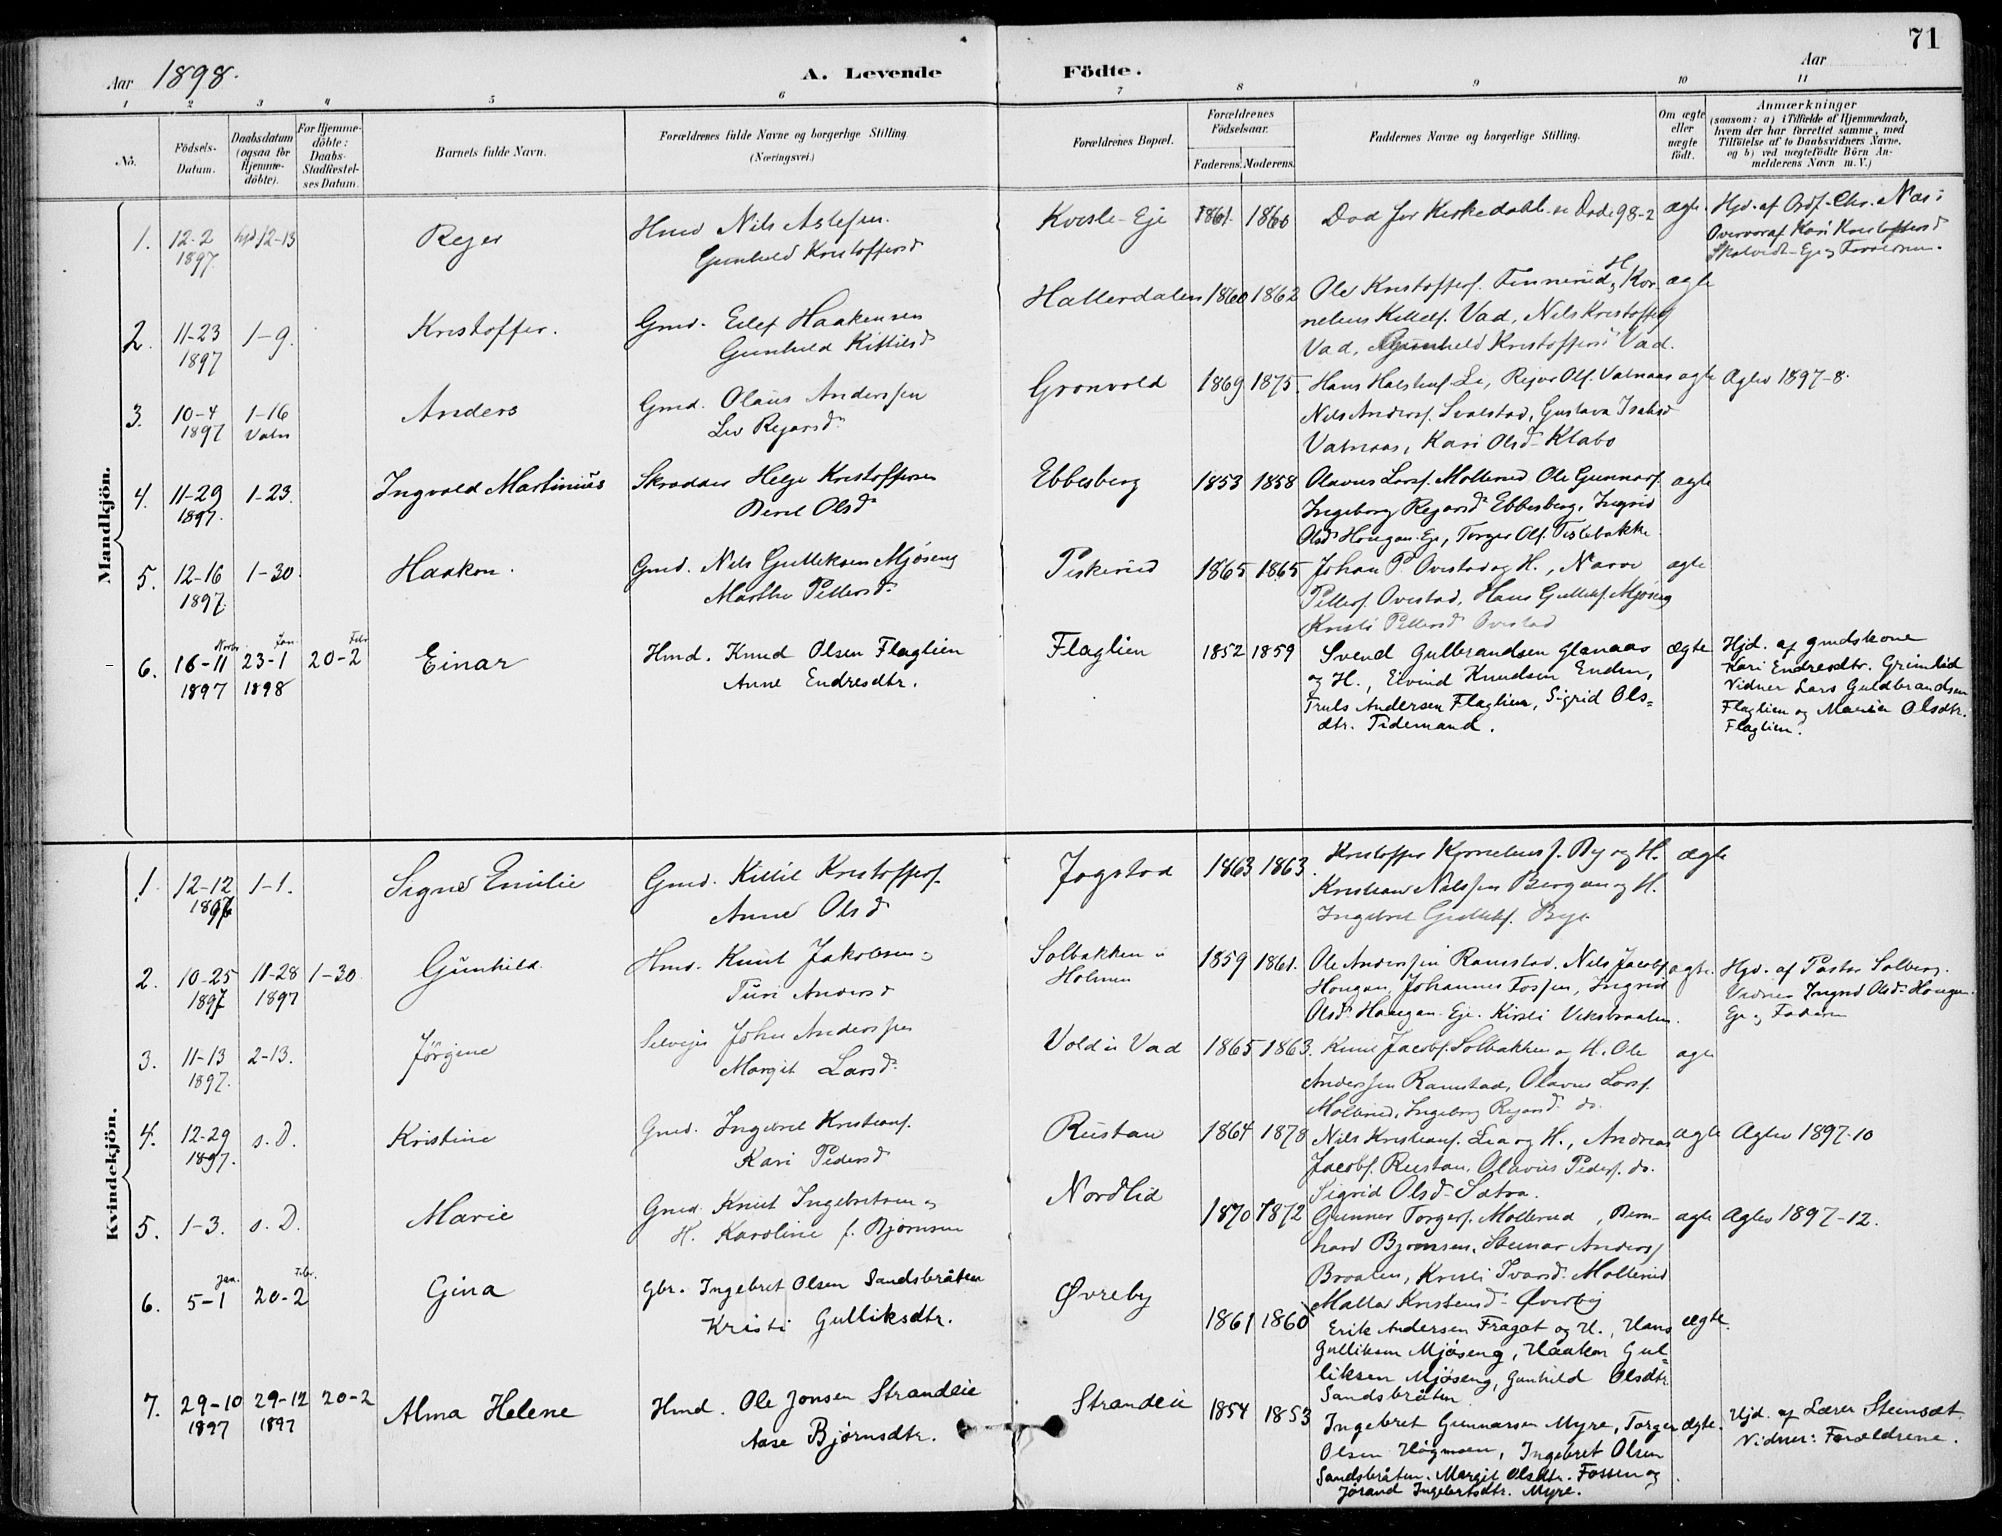 71
Aar 1898.
A. Levende Födte.
Aar
1 2 3 4 5 6 7 8 9 10 11
No.
Födsels-Datum.
Daabsdatum (ogsaa for Hjemme-döbte).
For Hjemme-döbte: Daabs-Stadfæstel-ses Datum.
Barnets fulde Navn.
Forældrenes fulde Navne og borgerlige Stilling
(Næringsvei.)
Forældrenes Bopæl.
Forældrenes Födselsaar.
Faderens. Moderens.
Faddernes Navne og borgerlige Stilling.
Om ægte eller uægte födt.
Anmærkninger
(saasom: a) i Tilfælde af Hjemmedaab,
hvem der har forrettet samme, med
Tilföielse af to Daabsvidners Navne,
og b) ved uægtefödte Börn An-
melderens Navn m. V.)
Mandkjön.
1. 12-2 1897. hjd 12-13
Rejer
Hmd Nils
Gunhild Kristoffersd
Kvisle-Eje 1861. 1860
Död før Kirkedaab se Döde 98-2
ægte
Hjd. af Ordf. Chr. Næs i
Overvær af Kari Kristoffersd
2. 11-23 1897 1-9.
Kristoffer.
Gmd. Eilef Haakensen
Gunhild Kittilsd
Hallerdalen 1860 1862
Ole Kristoffers. Finnerud, Kor-
nelius Kittels. Vad, Nils Kristoffers
Vad, Gunhild Kristoffers. Vad.
ægte
3. 10-4 1897 1-16
Anders
Gmd. Olaus Anderssen
Liv Rejarsd
Grønvold 1869 1875.
Hans Halstens. Li, Rejer Ols. Valnaas
Nils Anders. Svalstad, Gustava Isaksd
Valnaas, Kari Olsd Klabo
ægte
Aglw 1897-8.
4. 11-29 1897. 1-23.
Ingvald Martinius
Skrædder Helge Kristoffersen
Beret Olsd
Ebbesberg 1853 1858
Olavus Lars. Mollerud Ole Gunnars.
Ingeborg Rejarsd Ebbesberg, Ingrid
Olsd Hougan Eje, Torger Ols. Tislebakke
ægte
5. 12-16 1897. 1-30.
Haakon.
Gmd. Nils Gulliksen Mjøseng
Marthe Pettersd
Piskerud 1865 1865
Johan P. Overstad og H., Narve
Petters. Overstad, Hans Gulliks. Mjøseng
Kristi Pettersd Overstad
ægte
6. 16-11 1897 23-1 1898 20-2
Einar
Hmd. Knud Olsen Flaglien
Anne Endresdtr.
Flaglien 1852 1859
Svend Gulbrandsen Glanaas
og H., Eivind Knudsen Enden,
Truls Andersen Flaglien, Sigrid Ols=
dtr. Tidemand.
ægte
Hjd. af gmdskone
Kari Endresdtr. Grimlid
Vidner Lars Guldbrandsen
Flaglien og Maria Olsdtr.
Flaglien.
Kvindekjön.
1 12-12 1897 1-1.
Signe Emilie
Gmd. Kittil Kristoffers.
Anne Olsd
Jogstad 1863 1863
Kristoffer Kornelius. By og H.
Kristian Nilssen Bergan og H.
Ingebret Gulliks. Bye
ægte
2. 10-25 1897 11-28 1897 1-30.
Gunhild
Hmd. Knut Jakobsen
Turi Andersd
Solbakken u Holmen 1859 1861.
Ole Anderssen Ramstad, Nils Jacobs
Hougan, Johannes Fossen, Ingrid
Olsd Hougan-Eje. Kirsti Viksbraaten.
ægte.
Hjd. af Pastor Solberg.
Vidner Ingrid Olsd Hougan
Eje og Faderen
3. 11-13 1897. 2-13.
Jørgine
Selvejer John Anderssen
Margit Larsd
Vold u Vad 1865 1863.
Knut Jacobs. Solbakken og H. Ole
Anderssen Ramstad, Olavus Lars.
Mollerud, Ingeborg Rejarsd do.
ægte
4. 12-29 1897. s.D.
Kristine
Gmd. Ingebret Kristians.
Kari Pedersd
Rustan 1864 1878
Nils Kristians. Lia og H., Andreas
Jacobs. Rustan, Olavus Peders. do.
Sigrid Olsd Sætra.
ægte
Aglw 1897-10
5. 1-3. s.D.
Marie
Gmd. Knut Ingebretsen og
H. Karoline f. Bjørnsen
Nordlid 1870 1872
Gunner Torgers. Mollerud, Bern-
hard Bjørnsen, Steinar Anders
Braaten, Kristi Ivarsd. Mollerud
Malla Kristensd Øverby
ægte
Aglw 1897-12.
6. 5-1 20-2
Gina
Gbr. Ingebret Olsen Sandsbråten
Kristi Gulliksdtr.
Øvreby 1861 1860
Erik Andersen Fragat og H., Hans
Gulliksen Mjøseng, Haakon Gul=
liksen Mjøseng, Gunhild Olsdtr.
Sandsbråten
ægte.
7. 29-10 1897 29-12 1897 20-2
Alma Helene
Hmd. Ole Jonsen Strandeie
Aase Bjørnsdtr.
Strandeie 1854 1853
Ingebret Gunnarsen Myre, Torger
Olsen Høgmoen, Ingebret Olsen
Sandsbråten. Margit Olsdtr. Fossen og
Jorand Ingebretsdtr. Myre.
ægte.
Hjd. af Lærer Steinsæt.
Vidner: Forældrene.